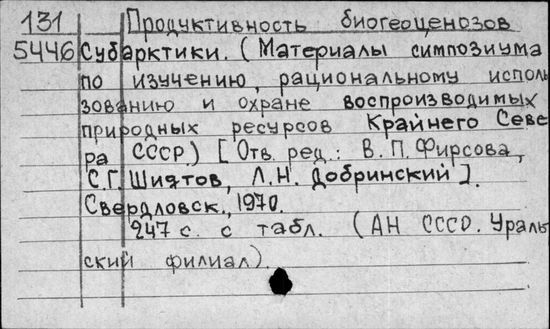 131 Продуктивность биогеоценозов
5446 Субарктики. (Материалы симпозиума
по изучению, рациональному исполь
зованию и охране воспроизводимых
природных ресурсов Крайнего Севе
ра СССР.) [Отв. ред.: В.П. Фирсова,
С.Г. Шиятов, Л.Н. Добринский].
Свердловск., 1970.
247 с. с табл. (АН СССР. Ураль
ский филиал).